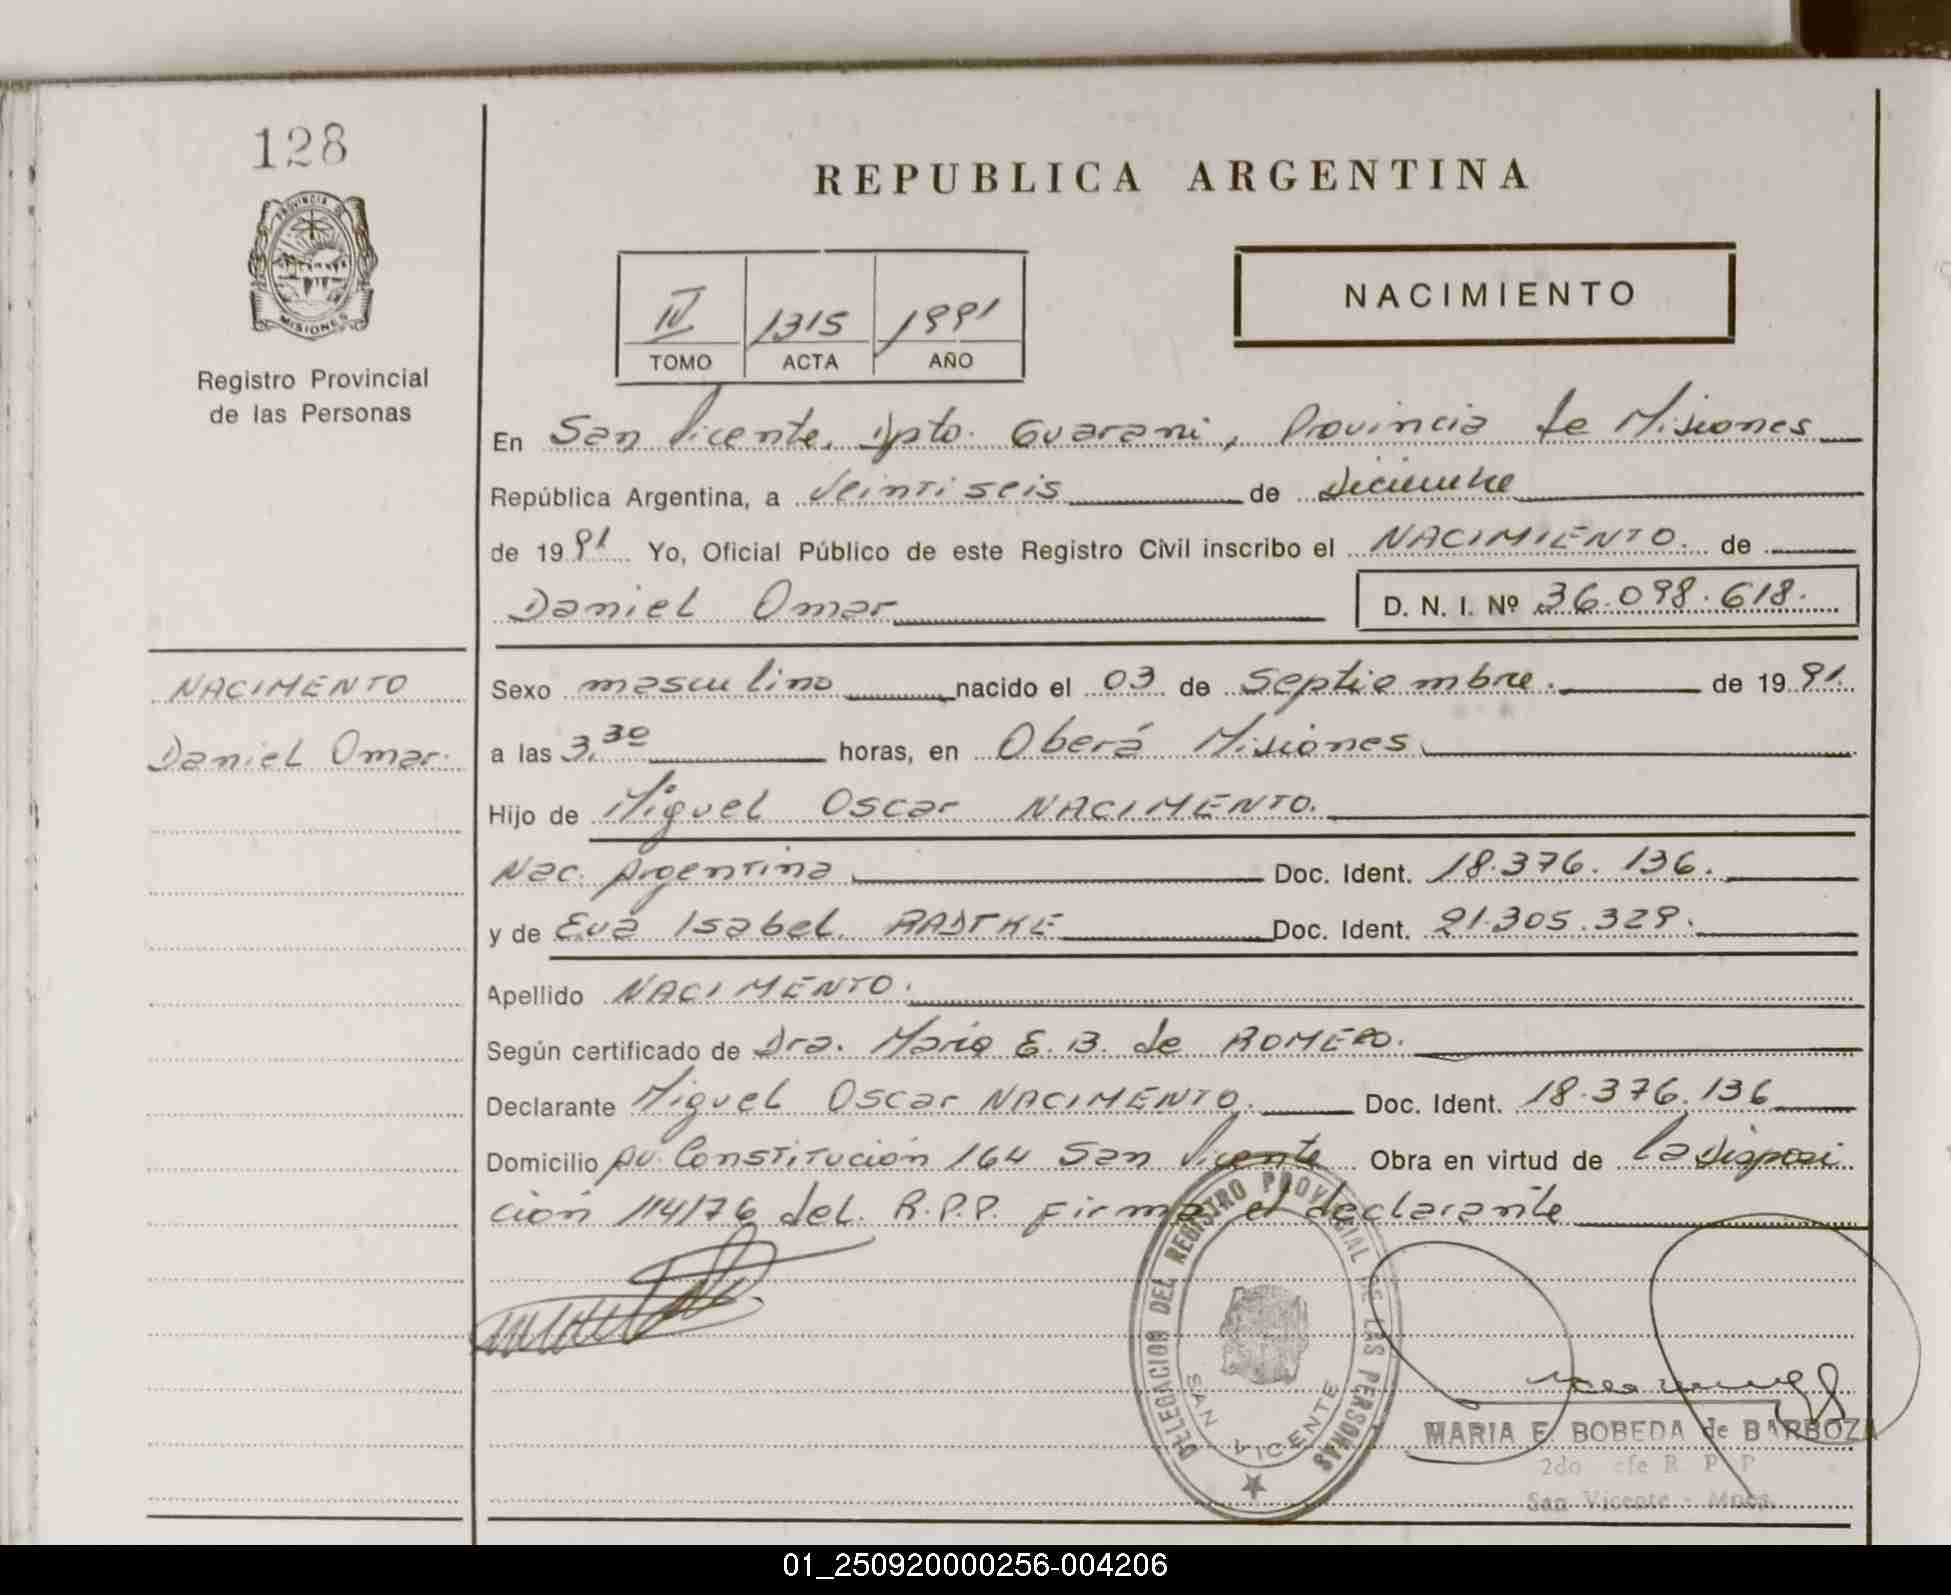 128
PROVINCIA DE
MISIONES
Registro Provincial
de las Personas
REPUBLICA ARGENTINA
NACIMIENTO
IV 1315 1991
TOMO ACTA AÑO
En San Vicente, Dpto. Guarani, Provincia de Misiones
República Argentina, a Veintiseis de Diciembre
de 1991 Yo, Oficial Público de este Registro Civil inscribo el NACIMIENTO. de
Daniel Omar D. N. I. Nº 36.098.618.
NACIMENTO
Daniel Omar.
Sexo masculino nacido el 03 de Septiembre. de 1991.
a las 3.30 horas, en Oberá Misiones
Hijo de Miguel Oscar NACIMENTO.
Nac. Argentina Doc. Ident. 18.376.136.
y de Eva Isabel RADTKE Doc. Ident. 21.305.329.
Apellido NACIMENTO.
Según certificado de Dra. Maria E. B. de ROMERO.
Declarante Miguel Oscar NACIMENTO. Doc. Ident. 18.376.136
Domicilio Av. Constitución 164 San Vicente Obra en virtud de la disposi
ción 114/76 del R.P.P. Firma el declarante
DELEGACION DEL REGISTRO PROVINCIAL DE LAS PERSONAS
SAN VICENTE
MARIA E. BOBEDA de BARBOZA
2do Jefe R P P
San Vicente - Mnes.
01_250920000256-004206